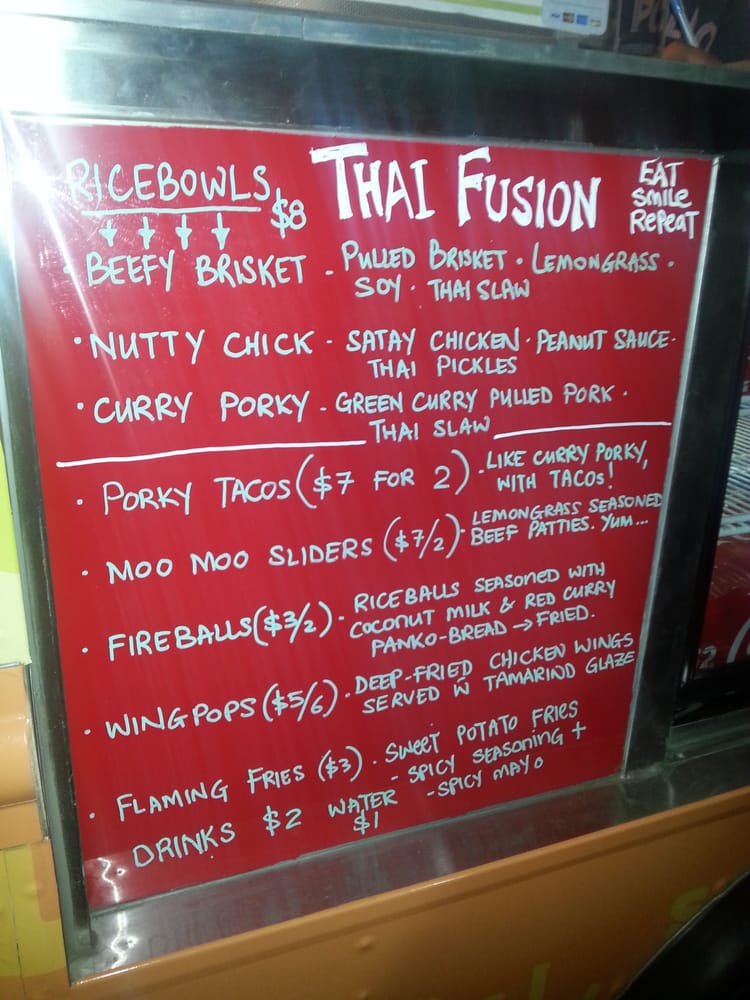 RICEBOWLS $8
THAI FUSION
EAT
SMILE
REPEAT
· BEEFY BRISKET - PULLED BRISKET · LEMONGRASS ·
SOY · THAI SLAW
· NUTTY CHICK - SATAY CHICKEN · PEANUT SAUCE ·
THAI PICKLES
· CURRY PORKY - GREEN CURRY PULLED PORK ·
THAI SLAW
· PORKY TACOS ($7 FOR 2) - LIKE CURRY PORKY,
WITH TACOS!
· MOO MOO SLIDERS ($7/2) - LEMONGRASS SEASONED
BEEF PATTIES. YUM...
· FIREBALLS ($3/2) - RICEBALLS SEASONED WITH
COCONUT MILK & RED CURRY
PANKO-BREAD → FRIED.
· WINGPOPS ($5/6) - DEEP-FRIED CHICKEN WINGS
SERVED W TAMARIND GLAZE
· FLAMING FRIES ($3) · SWEET POTATO FRIES
- SPICY SEASONING +
- SPICY MAYO
DRINKS $2 WATER
$1